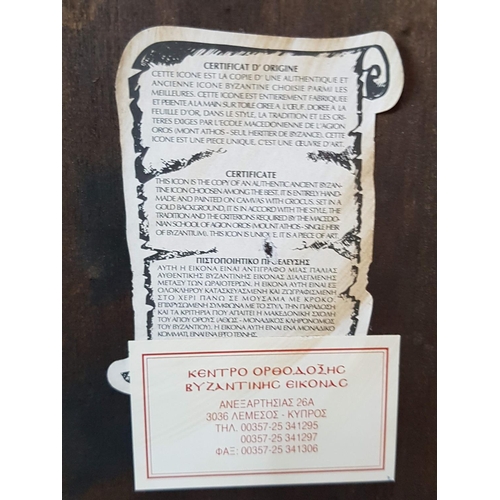 CERTIFICAT D' ORIGINE
CETTE ICONE EST LA COPIE D' UNE AUTHENTIQUE ET
ANCIENNE ICONE BYZANTINE CHOISIE PARMI LES
MEILLEURES. CETTE ICONE EST ENTIEREMENT FABRIQUEE
ET PEINTE A LA MAIN SUR TOILE CIREE A L'ŒUF. DOREE A LA
FEUILLE D'OR, DANS LE STYLE, LA TRADITION ET LES CRI-
TERES EXIGES PAR L'ECOLE MACEDONIENNE DE L'AGION
OROS (MONT ATHOS - SEUL HERITIER DE BYZANCE), CETTE
ICONE EST UNE PIECE UNIQUE, C'EST UNE ŒUVRE D'ART.
CERTIFICATE
THIS ICON IS THE COPY OF AN AUTHENTIC ANCIENT BYZAN-
TINE ICON CHOOSEN AMONG THE BEST. IT IS ENTIRELY HAND-
MADE AND PAINTED ON CANVAS WITH CROCUS, SET IN A
GOLD BACKGROUND, IT IS IN ACCORD WITH THE STYLE, THE
TRADITION AND THE CRITERIONS REQUIRED BY THE MACEDO-
NIAN SCHOOL OF AGION OROS (MOUNT ATHOS - SINGLE HEIR
OF BYZANTIUM). THIS ICON IS UNIQUE, IT IS A PIECE OF ART
ΠΙΣΤΟΠΟΙΗΤΙΚΟ ΠΡΟΕΛΕΥΣΗΣ
ΑΥΤΗ Η ΕΙΚΟΝΑ ΕΙΝΑΙ ΑΝΤΙΓΡΑΦΟ ΜΙΑΣ ΠΑΛΙΑΣ
ΑΥΘΕΝΤΙΚΗΣ ΒΥΖΑΝΤΙΝΗΣ ΕΙΚΟΝΑΣ ΔΙΑΛΕΓΜΕΝΗΣ
ΜΕΤΑΞΥ ΤΩΝ ΩΡΑΙΟΤΕΡΩΝ. Η ΕΙΚΟΝΑ ΑΥΤΗ ΕΙΝΑΙ ΕΞ
ΟΛΟΚΛΗΡΟΥ ΚΑΤΑΣΚΕΥΑΣΜΕΝΗ ΚΑΙ ΖΩΓΡΑΦΙΣΜΕΝΗ
ΣΤΟ ΧΕΡΙ ΠΑΝΩ ΣΕ ΜΟΥΣΑΜΑ ΜΕ ΚΡΟΚΟ.
ΕΠΙΧΡΥΣΩΜΕΝΗ ΣΥΜΦΩΝΑ ΜΕ ΤΟ ΣΤΥΛ, ΤΗΝ ΠΑΡΑΔΟΣΗ
ΚΑΙ ΤΑ ΚΡΙΤΗΡΙΑ ΠΟΥ ΑΠΑΙΤΕΙ Η ΜΑΚΕΔΟΝΙΚΗ ΣΧΟΛΗ
ΤΟΥ ΑΓΙΟΥ ΟΡΟΥΣ (ΑΘΩΣ - ΜΟΝΑΔΙΚΟΣ ΚΛΗΡΟΝΟΜΟΣ
ΤΟΥ ΒΥΖΑΝΤΙΟΥ). Η ΕΙΚΟΝΑ ΑΥΤΗ ΕΙΝΑΙ ΕΝΑ ΜΟΝΑΔΙΚΟ
ΚΟΜΜΑΤΙ, ΕΙΝΑΙ ΕΡΓΟ ΤΕΧΝΗΣ.
ΚΕΝΤΡΟ ΟΡΘΟΔΟΞΗΣ
ΒΥΖΑΝΤΙΝΗΣ ΕΙΚΟΝΑΣ
ΑΝΕΞΑΡΤΗΣΙΑΣ 26Α
3036 ΛΕΜΕΣΟΣ - ΚΥΠΡΟΣ
ΤΗΛ. 00357-25 341295
00357-25 341297
ΦΑΞ: 00357-25 341306